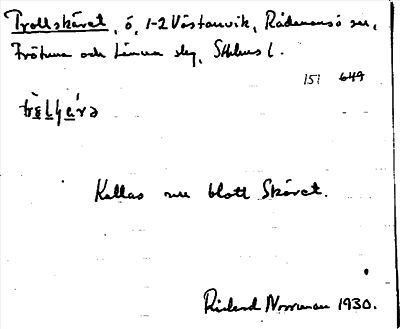 Trollskäret, ö, 1-2 Västanvik, Rådmansö sn,
Frötuna och Länna skg, Sthlms l.
151 649
Kallas nu blott Skäret.
Rickard Norrman 1930.